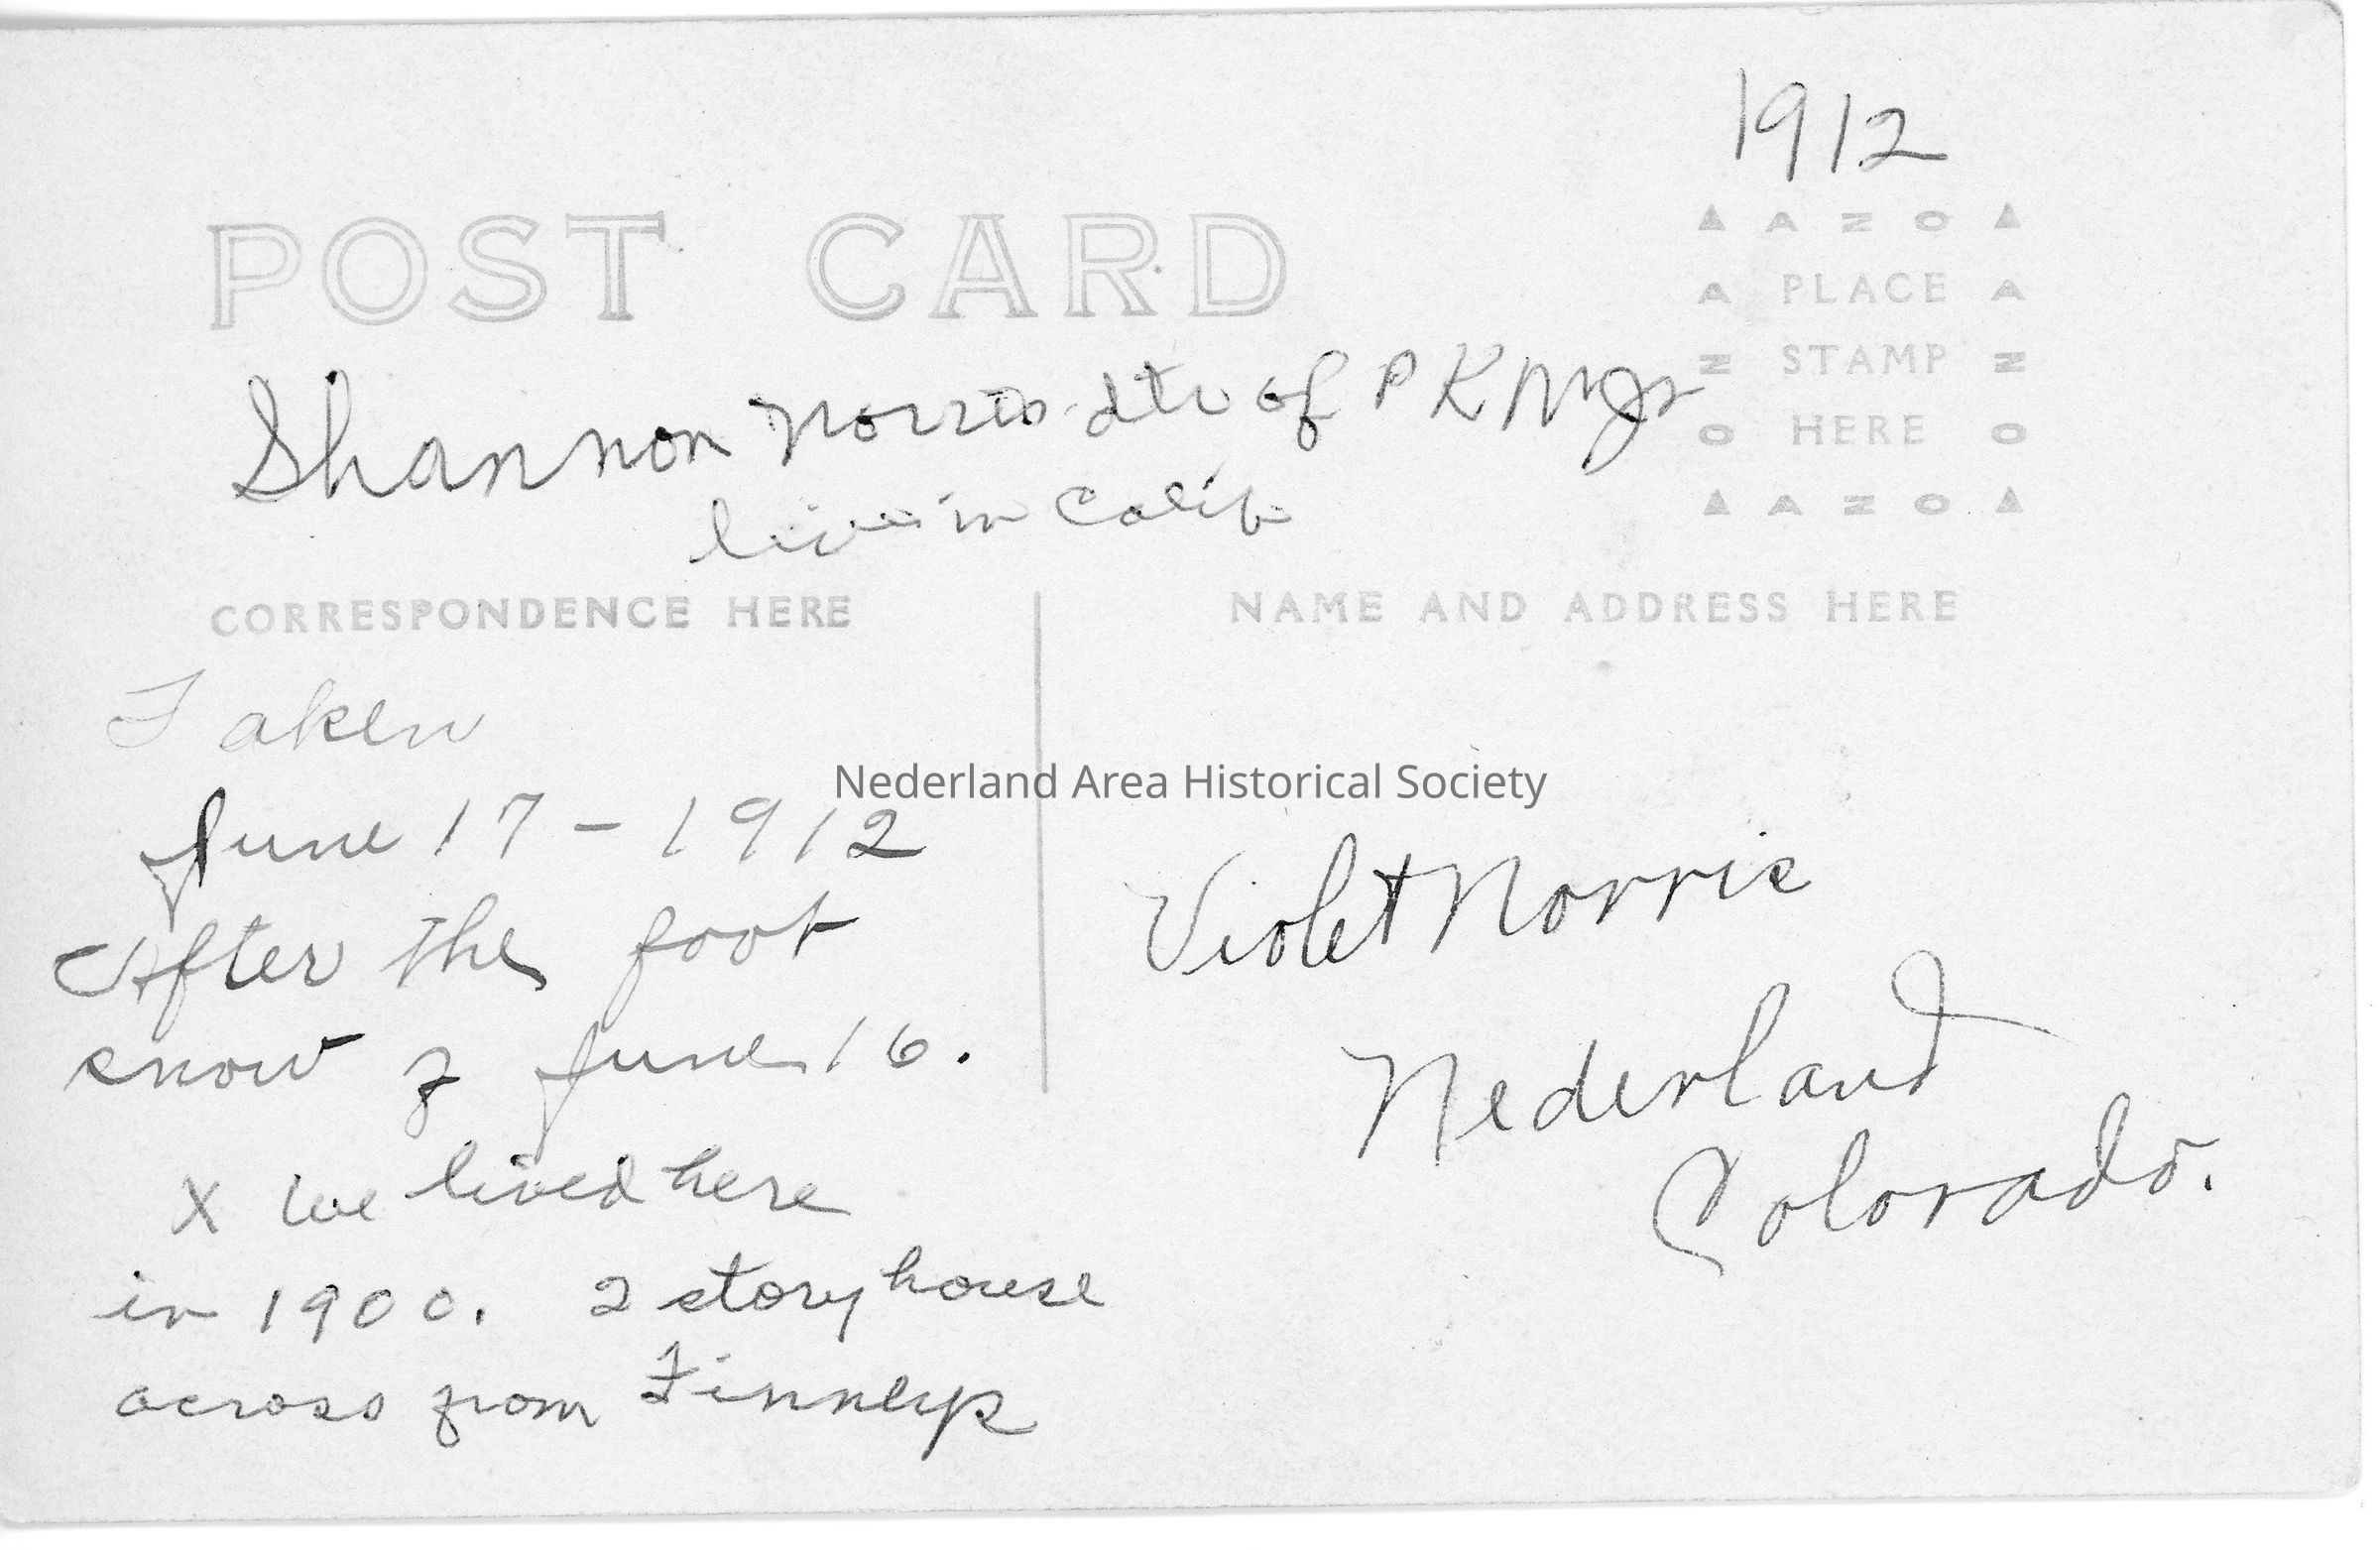 1912
POST CARD
AZO
PLACE
STAMP
HERE
AZO
AZO
AZO
Shannon Norris dtr of P K Mgr
live in Calif
CORRESPONDENCE HERE
NAME AND ADDRESS HERE
Taken
June 17 - 1912
After the foot
snow of June 16.
X we lived here
in 1900. 2 story house
across from Finneys
Nederland Area Historical Society
Violet Norris
Nederland
Colorado.